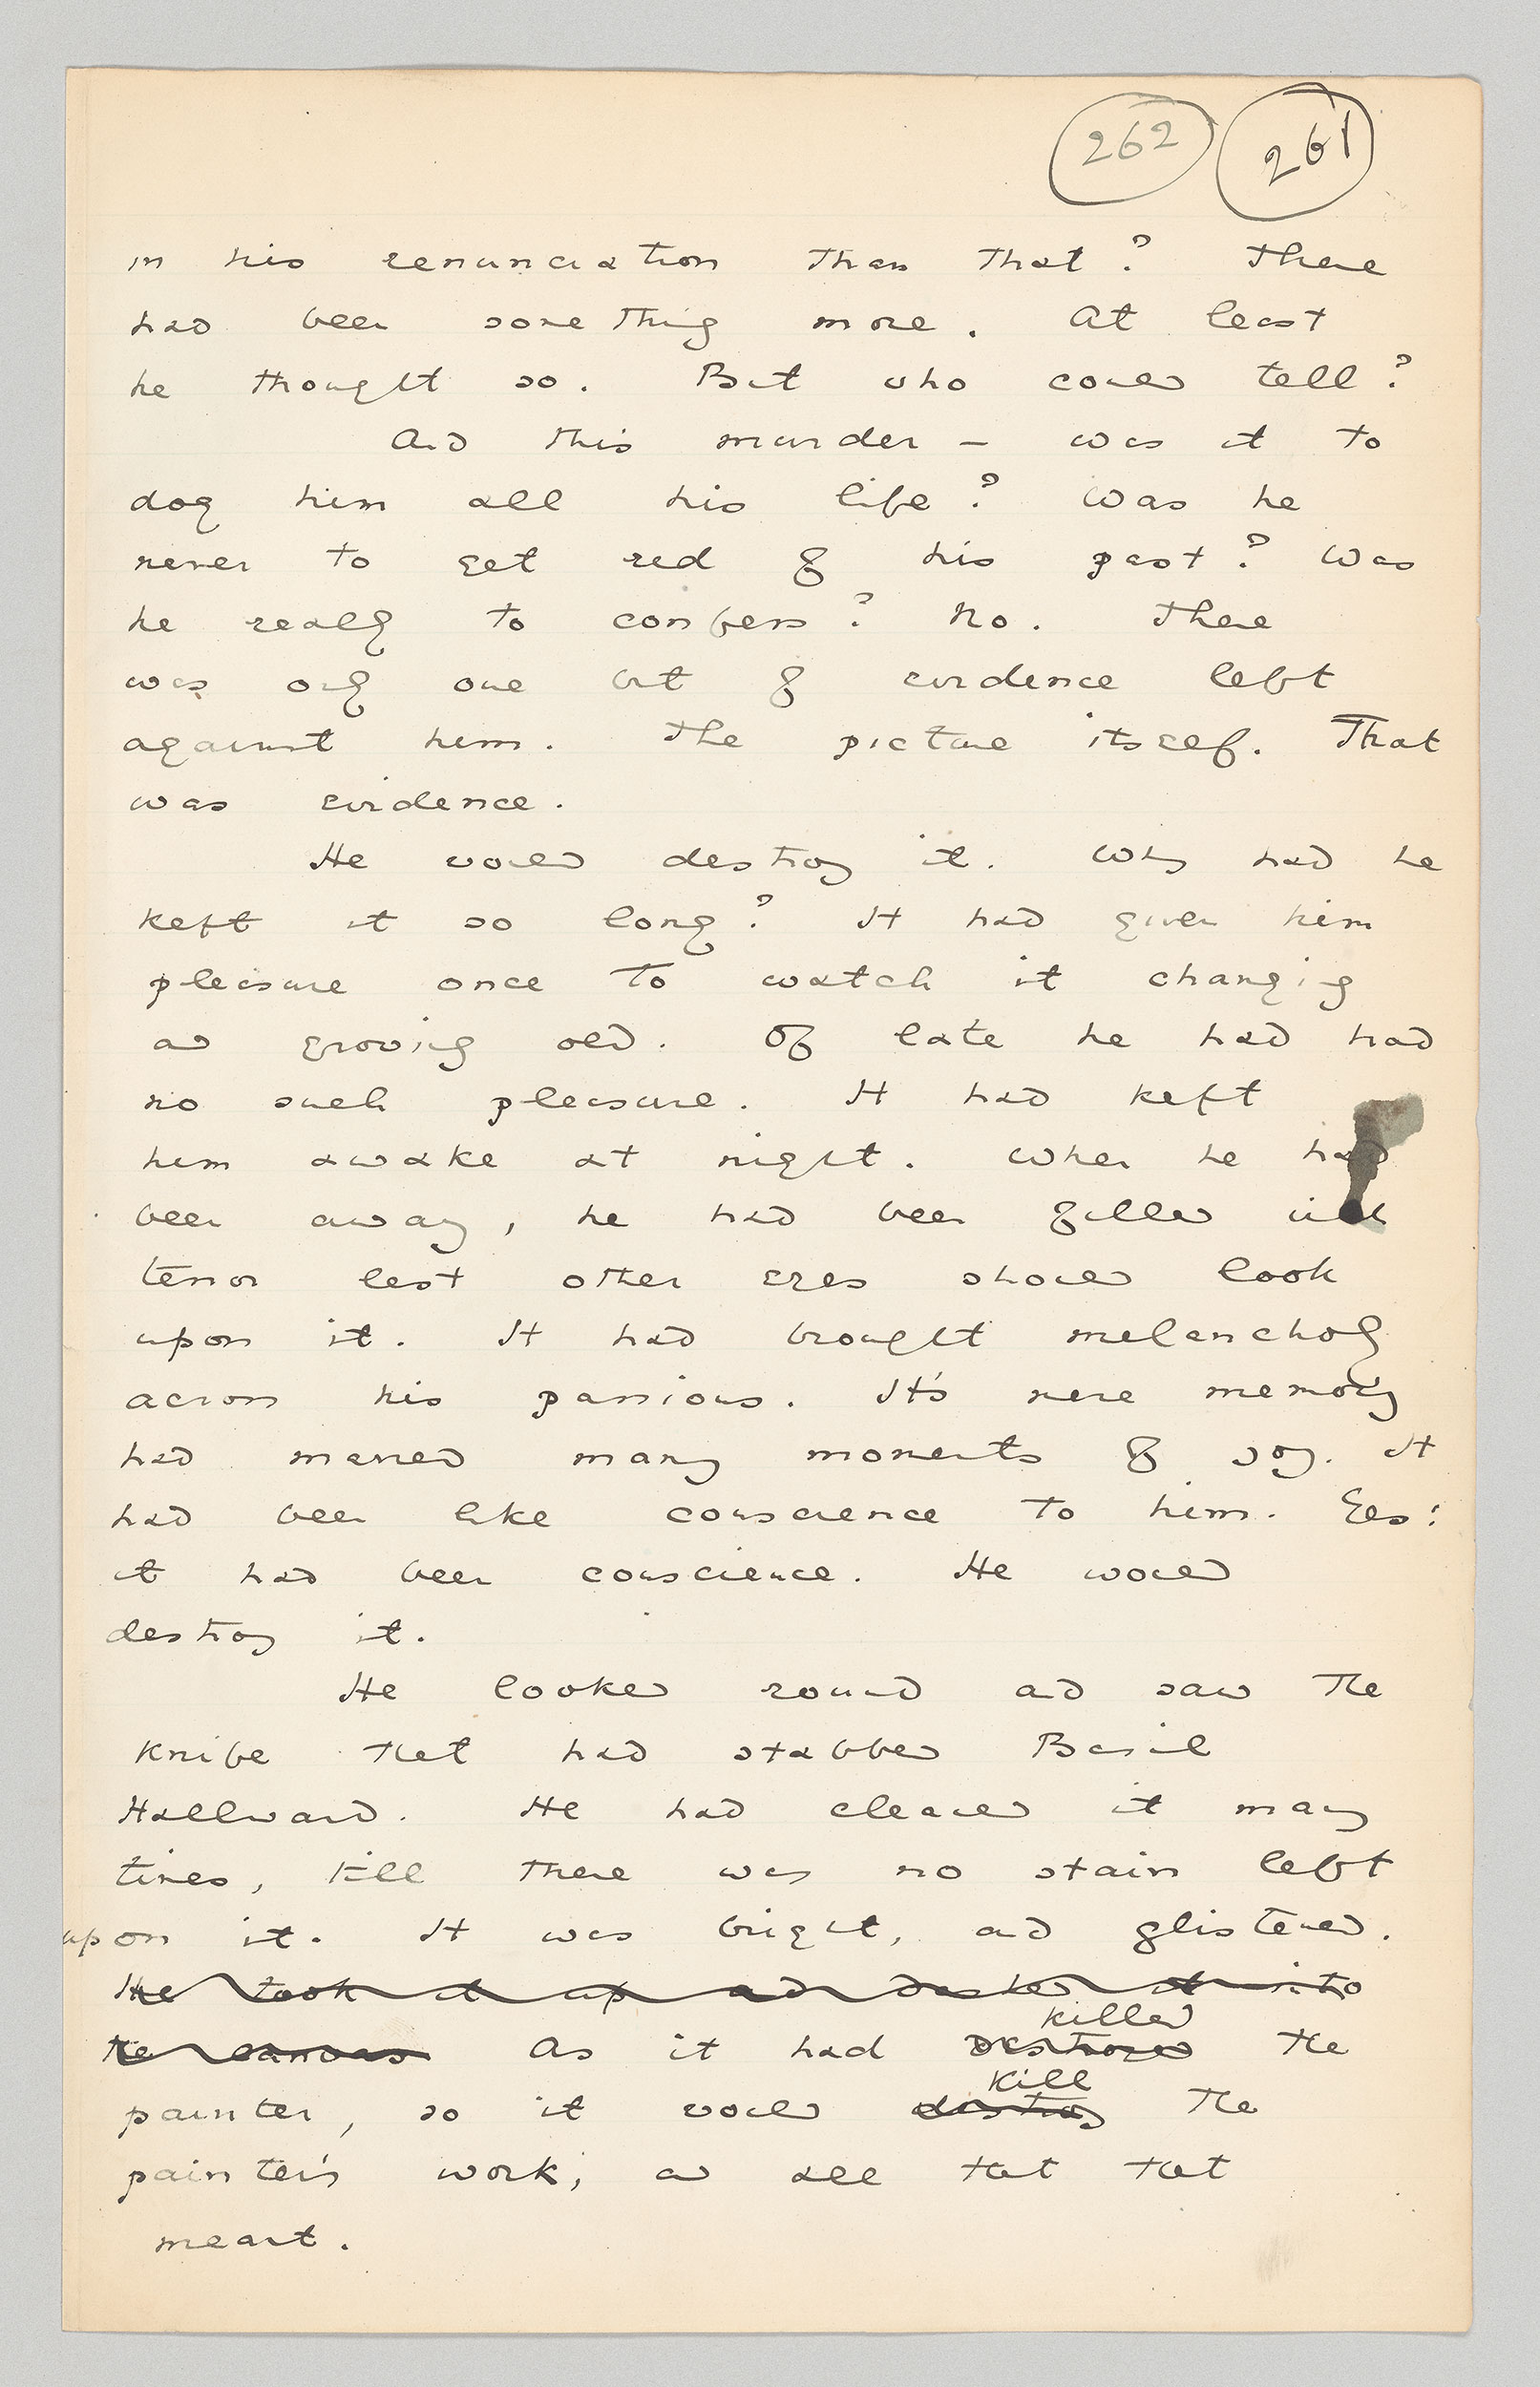 262 261
in his renunciation than that? There
had been something more. At least
he thought so. But who could tell?
And this murder — was it to
dog him all his life? Was he
never to get rid of his past? Was
he really to confess? No. There
was only one bit of evidence left
against him. The picture itself. That
was evidence.
He would destroy it. Why had he
kept it so long? It had given him
pleasure once to watch it changing
and growing old. Of late he had had
no such pleasure. It had kept
him awake at night. When he had
been away, he had been filled with
terror lest other eyes should look
upon it. It had brought melancholy
across his passions. It's mere memory
had marred many moments of joy. It
had been like conscience to him. Yes:
it had been conscience. He would
destroy it.
He looked round and saw the
knife that had stabbed Basil
Hallward. He had cleaned it many
times, till there was no stain left
upon it. It was bright, and glistened.
He took it up and dashed it into
killed
the canvas As it had destroyed the
kill
painter, so it would destroy the
painter's work, and all that that
meant.